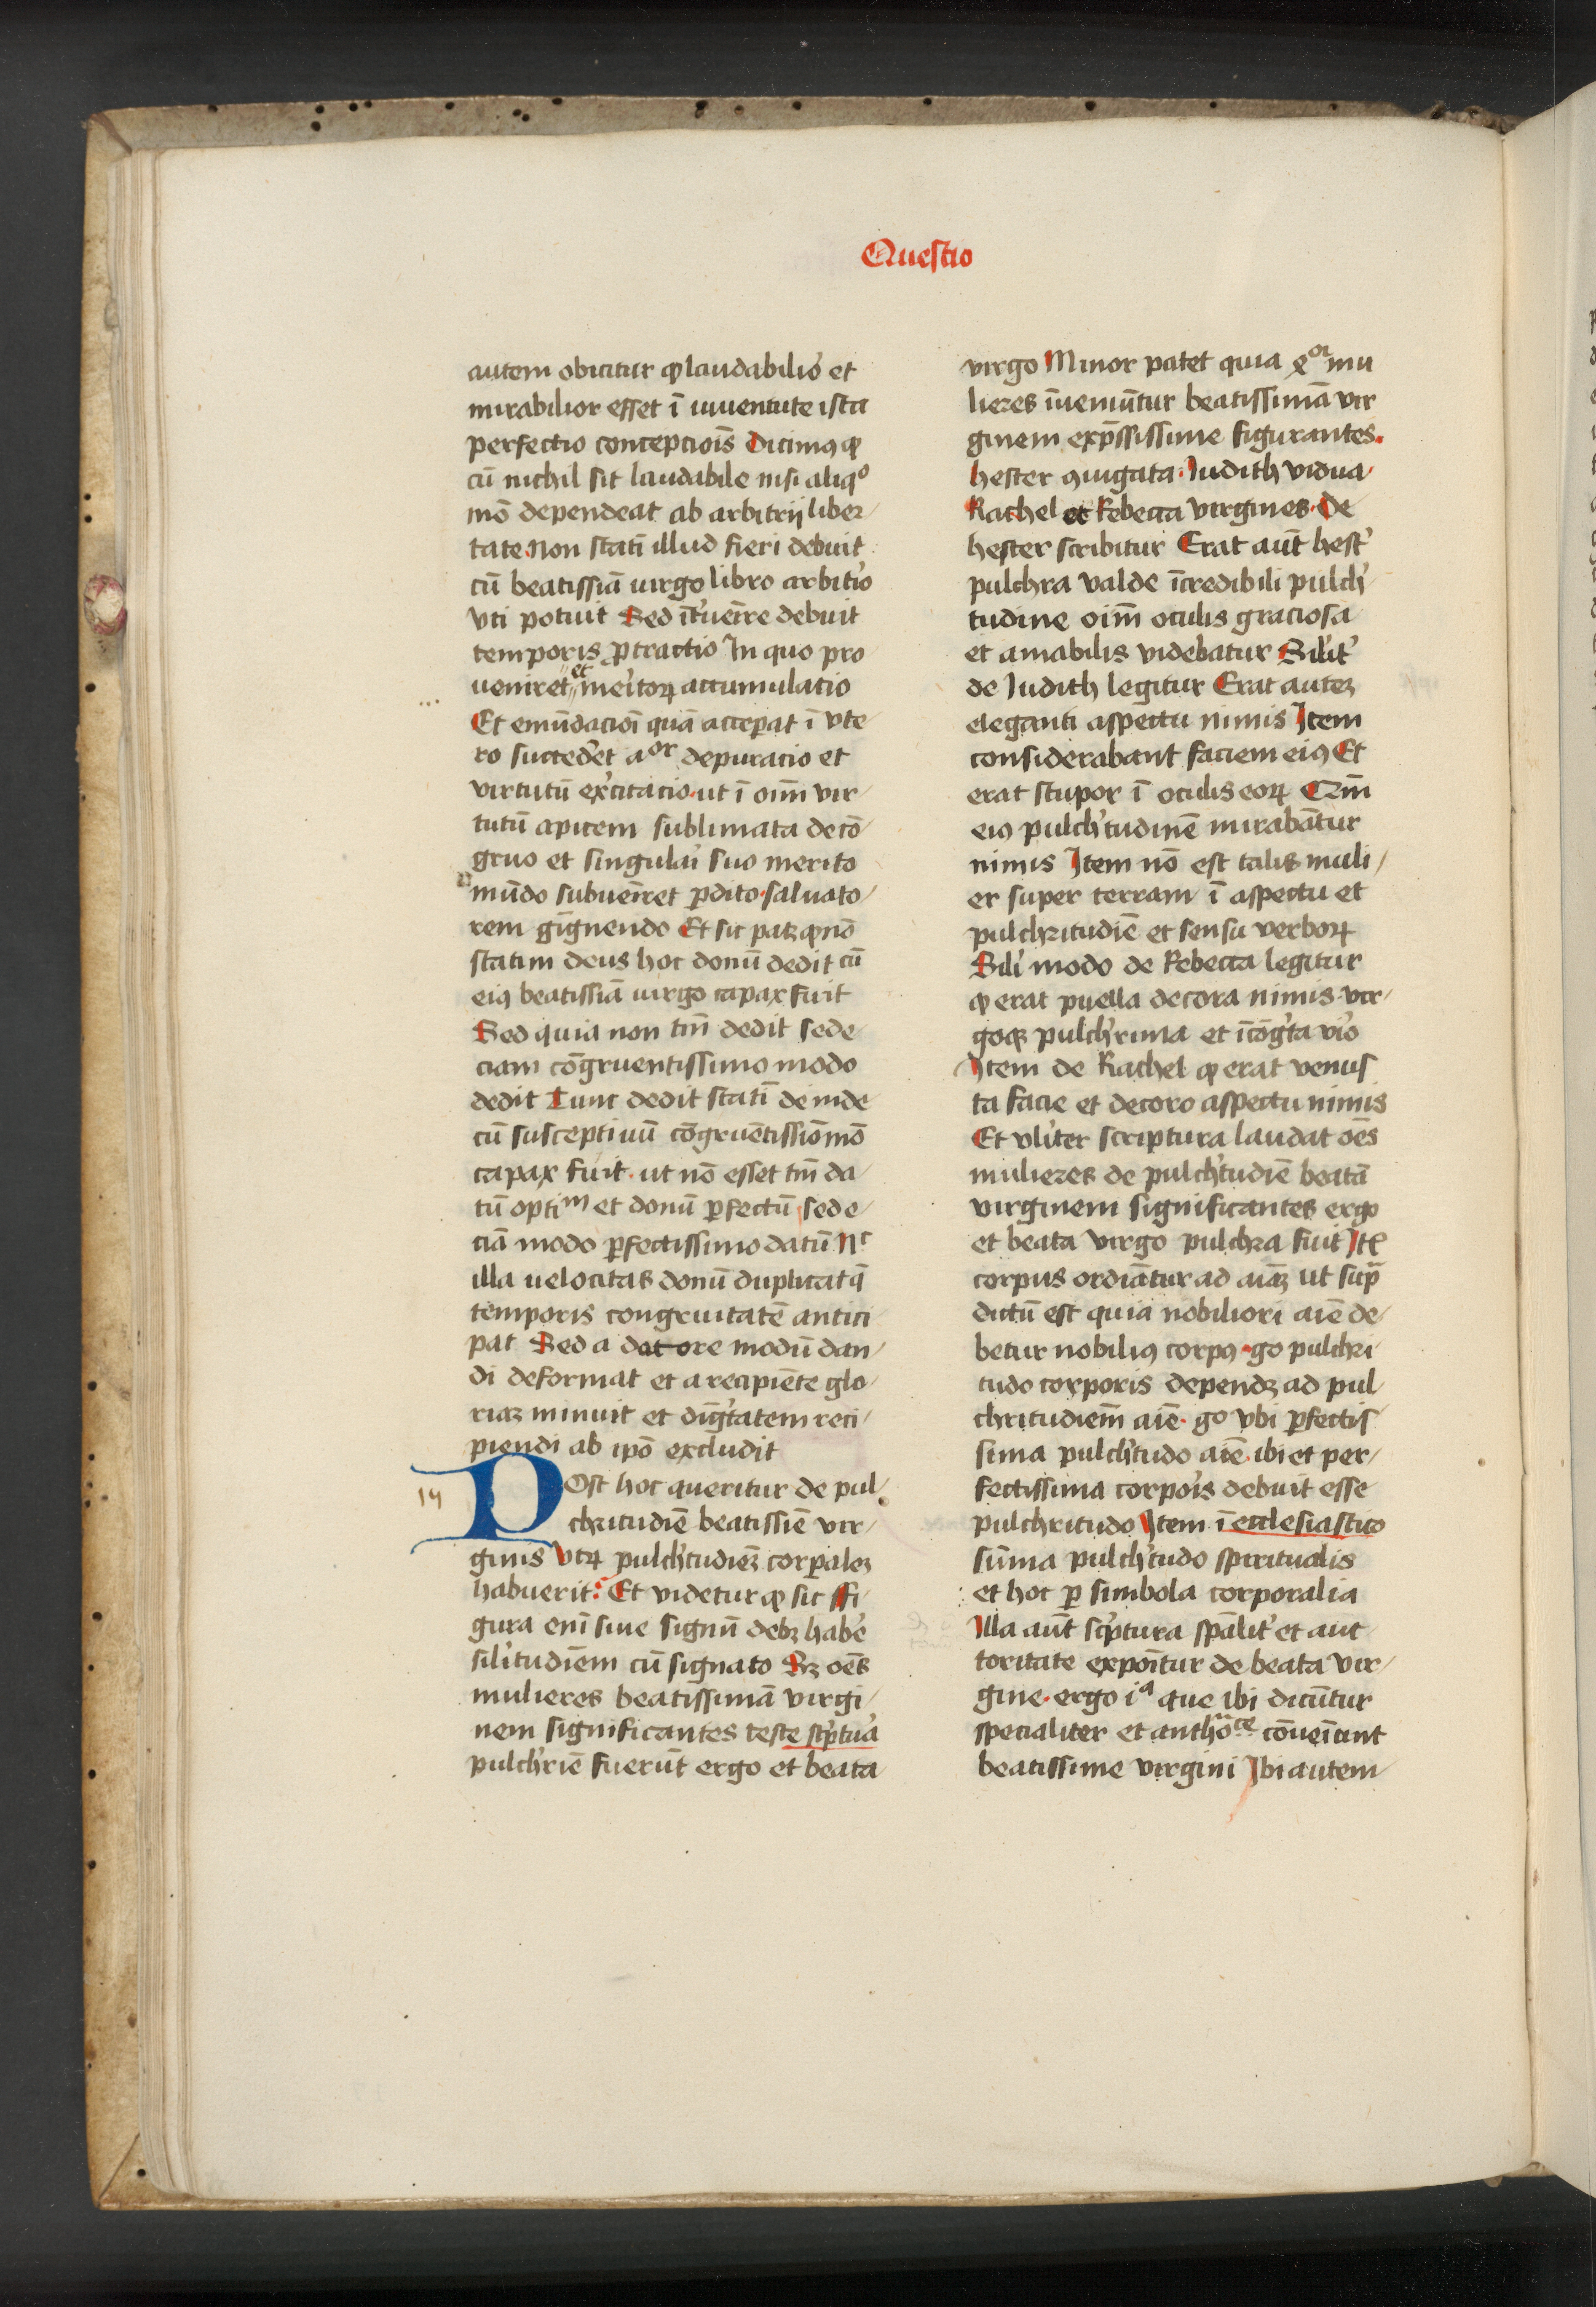 Questio
autem obicitur ꝙ laudabilio᷑ et
mirabilior esset ī iuuentute ista
perfectio concepciois̄ Dicimꝰ ꝙ
cū nichil sit laudabile nisi aliqͦ
mō dependeat ab arbitrij liber
tate Non statī illud fieri debuit
cū beatissiā uirgo libro arbitrio
vti potuit Sed īt᷑ueīre debuit
temporis ꝓtractio In quo pro
ueniret et meritoꝝ accumulatio
Et emūdacioī quā acceꝑat ī vte
ro succedet᷑ aᵒʳ depuracio et
virtutū exc̓itacio ut ī oīm vir
tutū apicem sublimata de cō
gruo et singulari suo merito
mūdo subueīret ꝑdito saluato
rem gignendo Et sic patꝫ ꝙ nō
statim deus hoc donū dedit cū
eiꝰ beatissiā uirgo capax fuit
Sed quia non tm̄ dedit sed e
ciam cōgruentissimo modo
dedit Tunc dedit statī deinde
cū susceptiuū cōgruētissīo mō
capax fuit ut nō esset tm̄ da
tū optiᵐ et donū ꝑfectū sed e
ciā modo ꝑfectissimo datū Nᶜ
illa uelocitas donū duplicat q̄
temporis congruitatē antici
pat Sed a datore modū dan
di deformat et a recipiēte glo
riaꝫ minuit et digt̓atem reci
piendi ab ipō excludit
14
Post hoc queritur de pul
chritudiē beatissiē vir
ginis Vtꝝ pulch̓tudieꝫ corꝑaleꝫ
habuerit Et videtur ꝙ sic ffi
gura enī siue signū debꝫ habe᷑
sil̓itudiēm cū signato Sꝫ oēs
mulieres beatissimā virgi
nem significantes teste sc̓ptu᷑a
pulch̓riē fuerūt ergo et beata
virgo Minor patet quia ꝯᵒʳ mu
lieres īueniūtur beatissimā vir
ginem exp̄ssissime figurantes
hester ꝯiugata Iudith vidua
Rachel et Rebecca virgines De
hester scribitur Erat aūt hest᷑
pulchra valde īcredibili pulch᷑
tudine oīm oculis graciosa
et amabilis videbatur Silit᷑
de Iudith legitur Erat auteꝫ
eleganti aspectu nimis Item
considerabant faciem eiꝰ Et
erat stupor ī oculis eoꝝ Qm̄
eiꝰ pulch̓tudinē mirabātur
nimis Item nō est talis muli
er super terram ī aspectu et
pulchritudiē et sensu verboꝝ
Sili modo de Rebecca legitur
ꝙ erat puella decora nimis vir
goqꝫ pulch̓rima et īcōg̓ta vi᷑o
Item de Rachel ꝙ erat venus
ta facie et decoro aspectu nimis
Et vl̓iter scriptura laudat oēs
mulieres de pulch̓tudiē beatā
virginem significantes ergo
et beata virgo pulchra fuit Itē
corpus ordiātur ad aīaꝫ ut sup̄
dictū est quia nobiliori aīe de
betur nobiliꝰ corpꝰ go pulchri
tudo corporis dependꝫ ad pul
chritudiem̄ aīe go vbi ꝑfectis
sima pulch̓tudo aīe ibi et per
fectissima corpoīs debuit esse
pulchritudo Item ī ecclesiastico
sūma pulch̓tudo spiritualis
et hoc ꝑ simbola corporalia
Illa aūt sc̓ptura spālit᷑ et auc
toritate expoītur de beata vir
gine ergo iᵃ que ibi dicūtur
specialiter et anthōᶜᵉ cōueīūnt
beatissime virgini Ibi autem